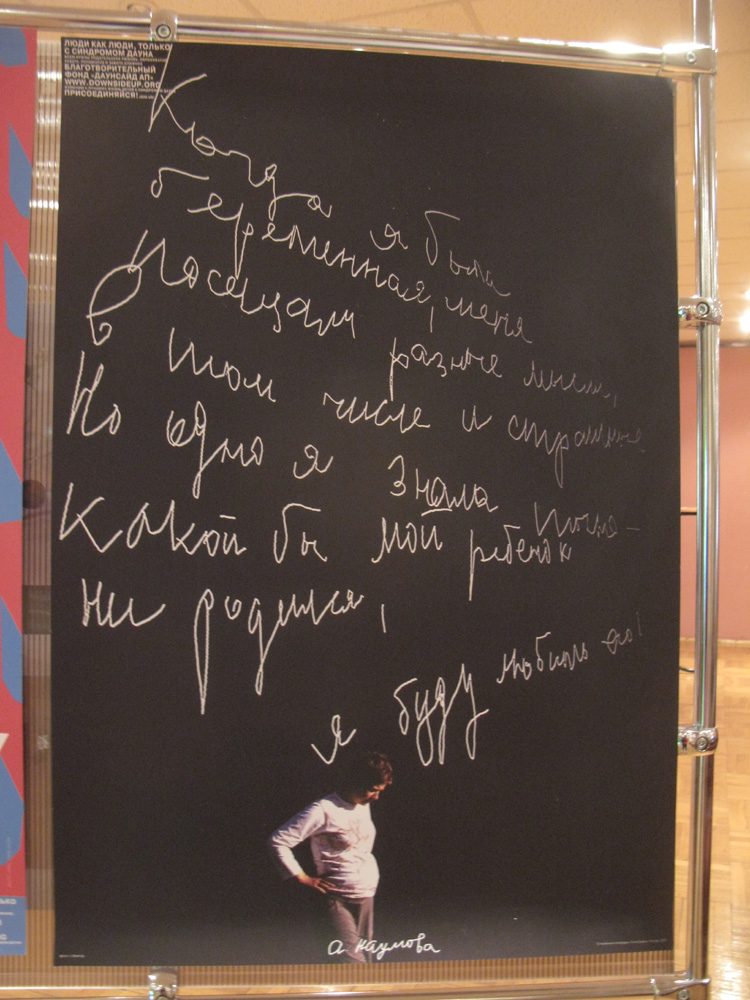 ЛЮДИ КАК ЛЮДИ, ТОЛЬКО
С СИНДРОМОМ ДАУНА
БЛАГОТВОРИТЕЛЬНЫЙ
ФОНД «ДАУНСАЙД АП»
WWW.DOWNSIDEUP.ORG
ПРИСОЕДИНЯЙСЯ!
Когда я была
беременная, меня
Посещали разные мысли,
в том числе и страшные
Но одно я знала точно –
Какой бы мой ребёнок
ни родился,
я буду любить его!
А Наумова